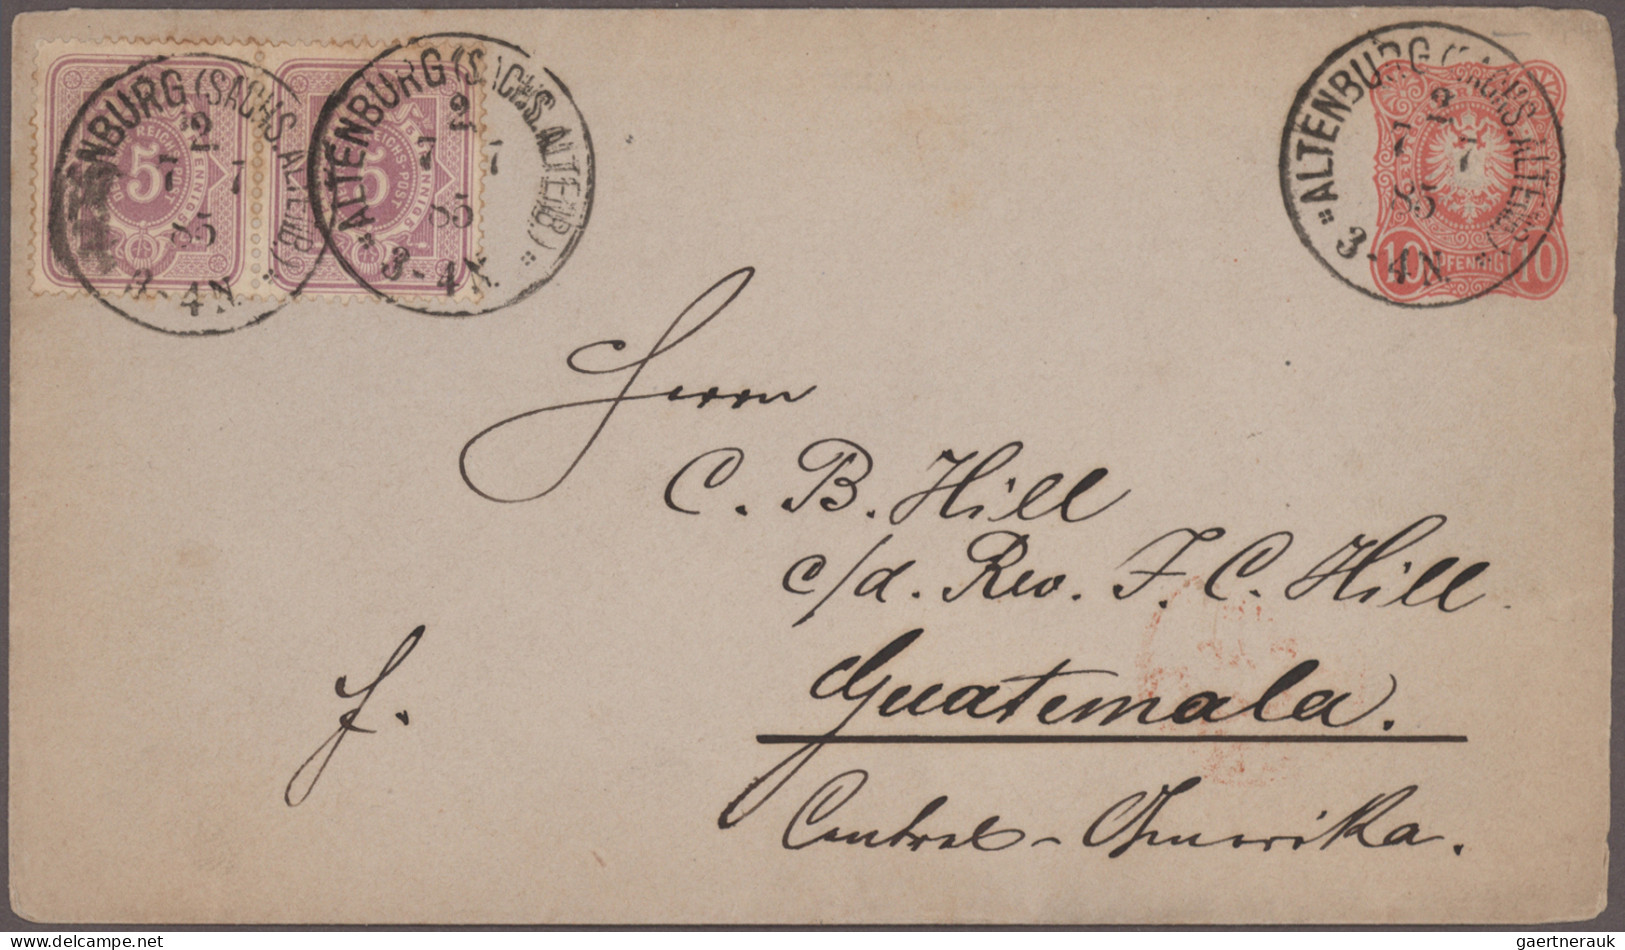 ALTENBURG (SACHS. ALTENB.)
2
7 7
85
3-4N
ALTENBURG (SACHS. ALTENB.)
2
7 7
85
3-4N
5
5
10 PFENNIG 10
ALTENBURG (SACHS. ALTENB.)
2
7 7
85
3-4N
Herrn
C. B. Hill
c/d. Rev. F. C. Hill
f.
Guatemala.
Central-Amerika.
gaertnerauk